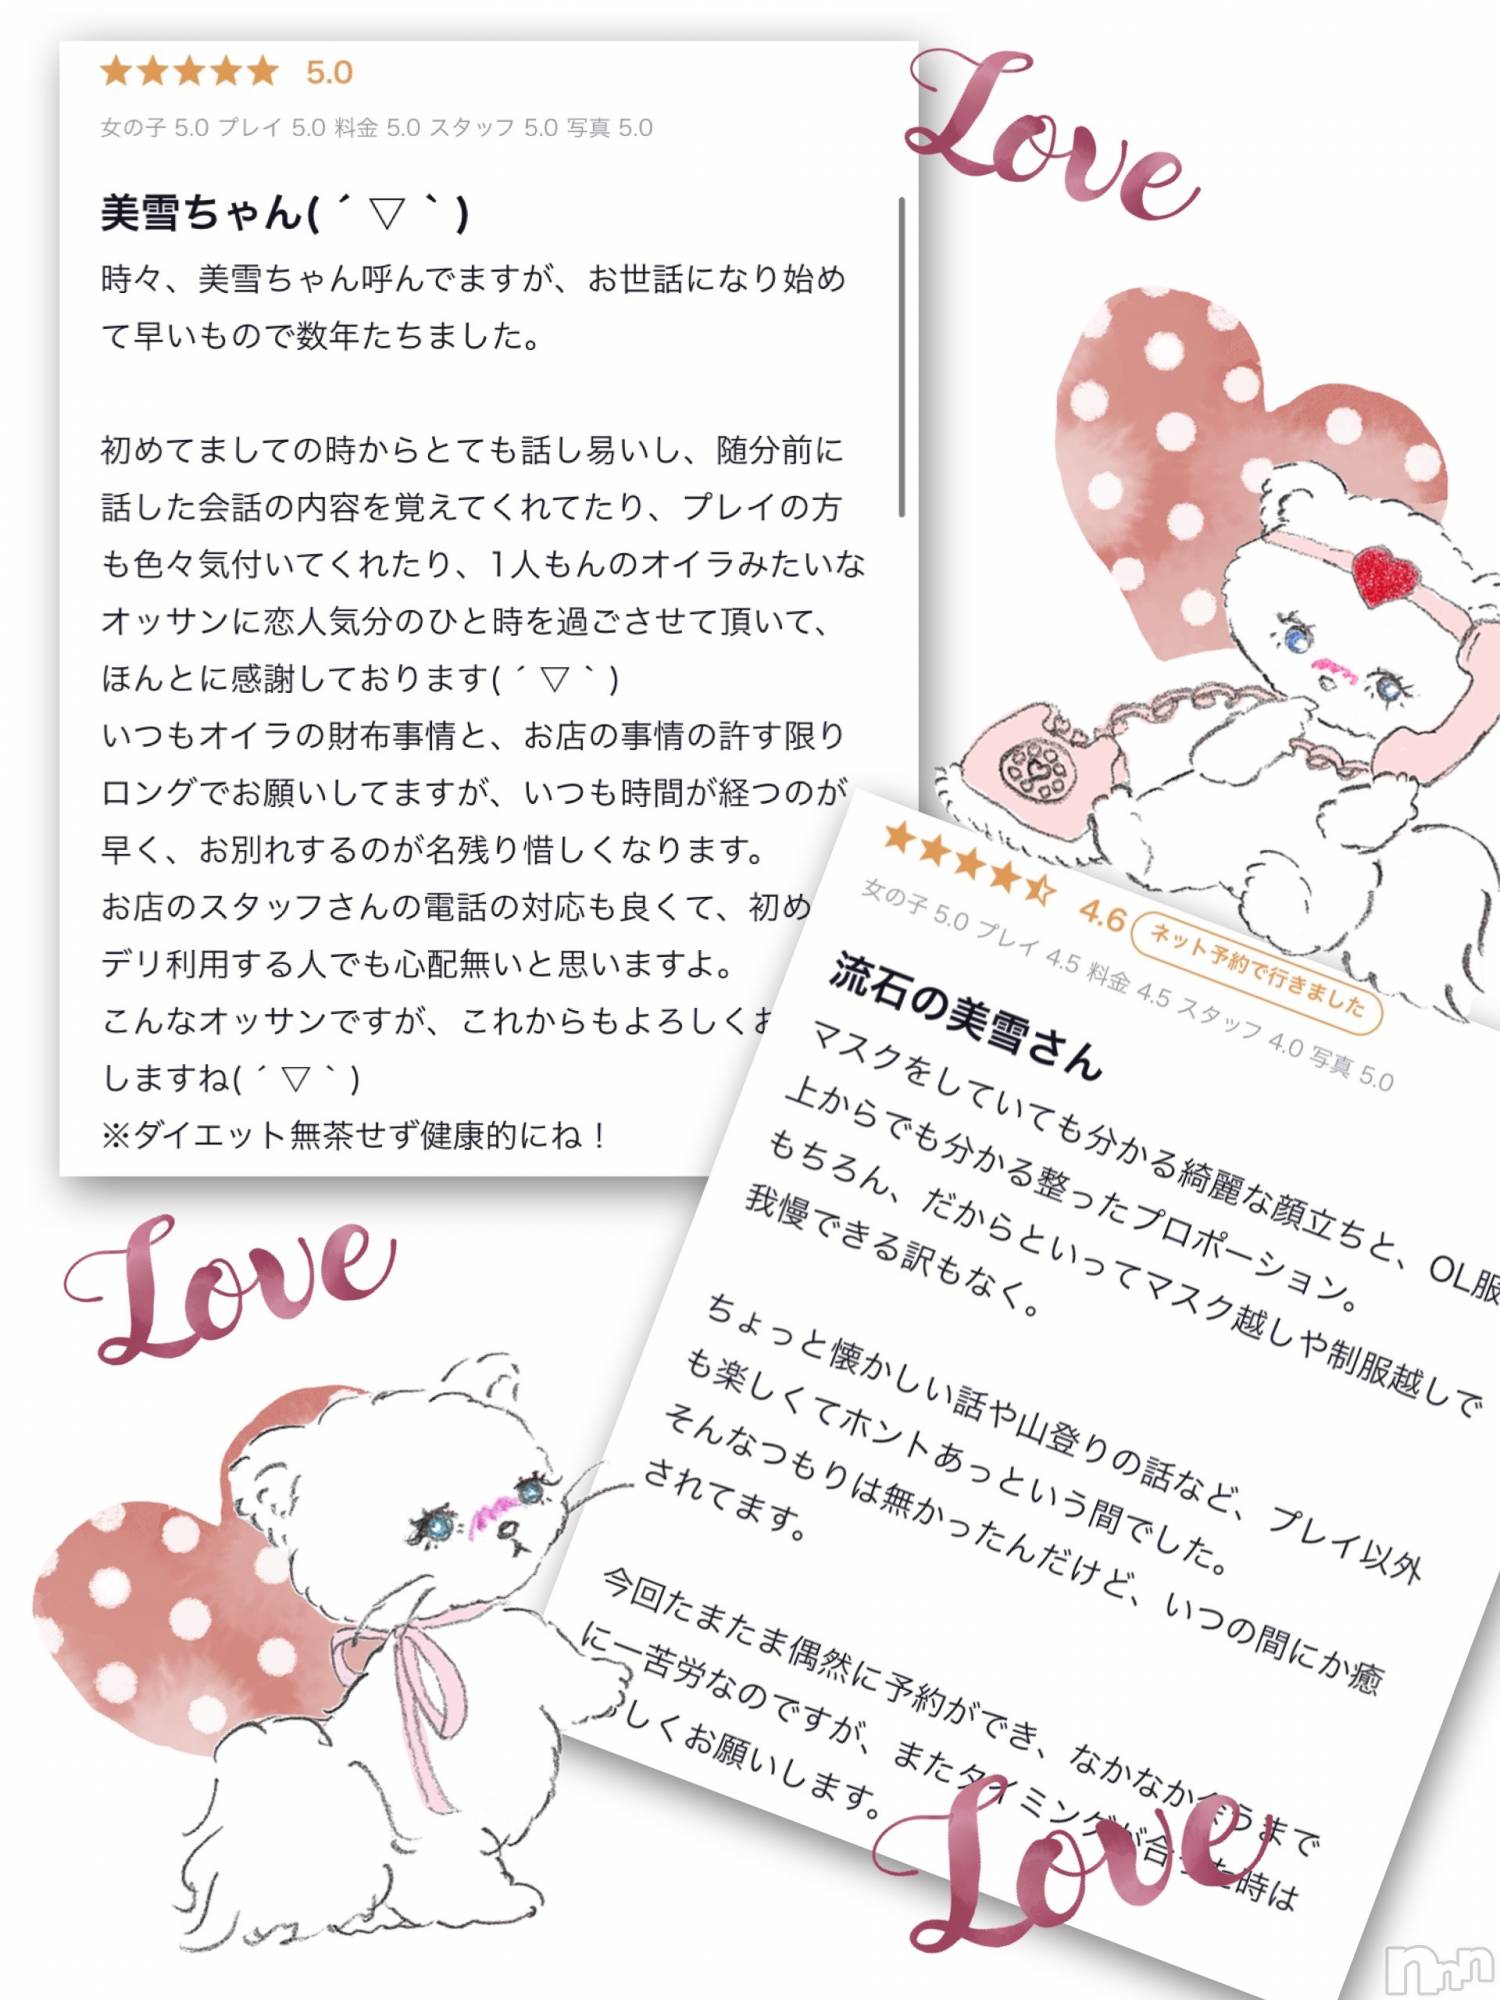 ★★★★★ 5.0
女の子 5.0 プレイ 5.0 料金 5.0 スタッフ 5.0 写真 5.0
美雪ちゃん( ´ ▽ ` )
時々、美雪ちゃん呼んでますが、お世話になり始め
て早いもので数年たちました。
初めてましての時からとても話し易いし、随分前に
話した会話の内容を覚えてくれてたり、プレイの方
も色々気付いてくれたり、1人もんのオイラみたいな
オッサンに恋人気分のひと時を過ごさせて頂いて、
ほんとに感謝しております( ´ ▽ ` )
いつもオイラの財布事情と、お店の事情の許す限り
ロングでお願いしてますが、いつも時間が経つのが
早く、お別れするのが名残り惜しくなります。
お店のスタッフさんの電話の対応も良くて、初め
デリ利用する人でも心配無いと思いますよ。
こんなオッサンですが、これからもよろしくお
しますね( ´ ▽ ` )
※ダイエット無茶せず健康的にね！
Love
4.6 ネット予約で行きました
女の子 5.0 プレイ 4.5 料金 4.5 スタッフ 4.0 写真 5.0
流石の美雪さん
マスクをしていても分かる綺麗な顔立ちと、OL服
上からでも分かる整ったプロポーション。
もちろん、だからといってマスク越しや制服越しで
我慢できる訳もなく。
ちょっと懐かしい話や山登りの話など、プレイ以外
も楽しくてホントあっという間でした。
そんなつもりは無かったんだけど、いつの間にか癒
されてます。
今回たまたま偶然に予約ができ、なかなか会うまで
に一苦労なのですが、またタイミングが合った時は
しくお願いします。
Love
Love
nnn